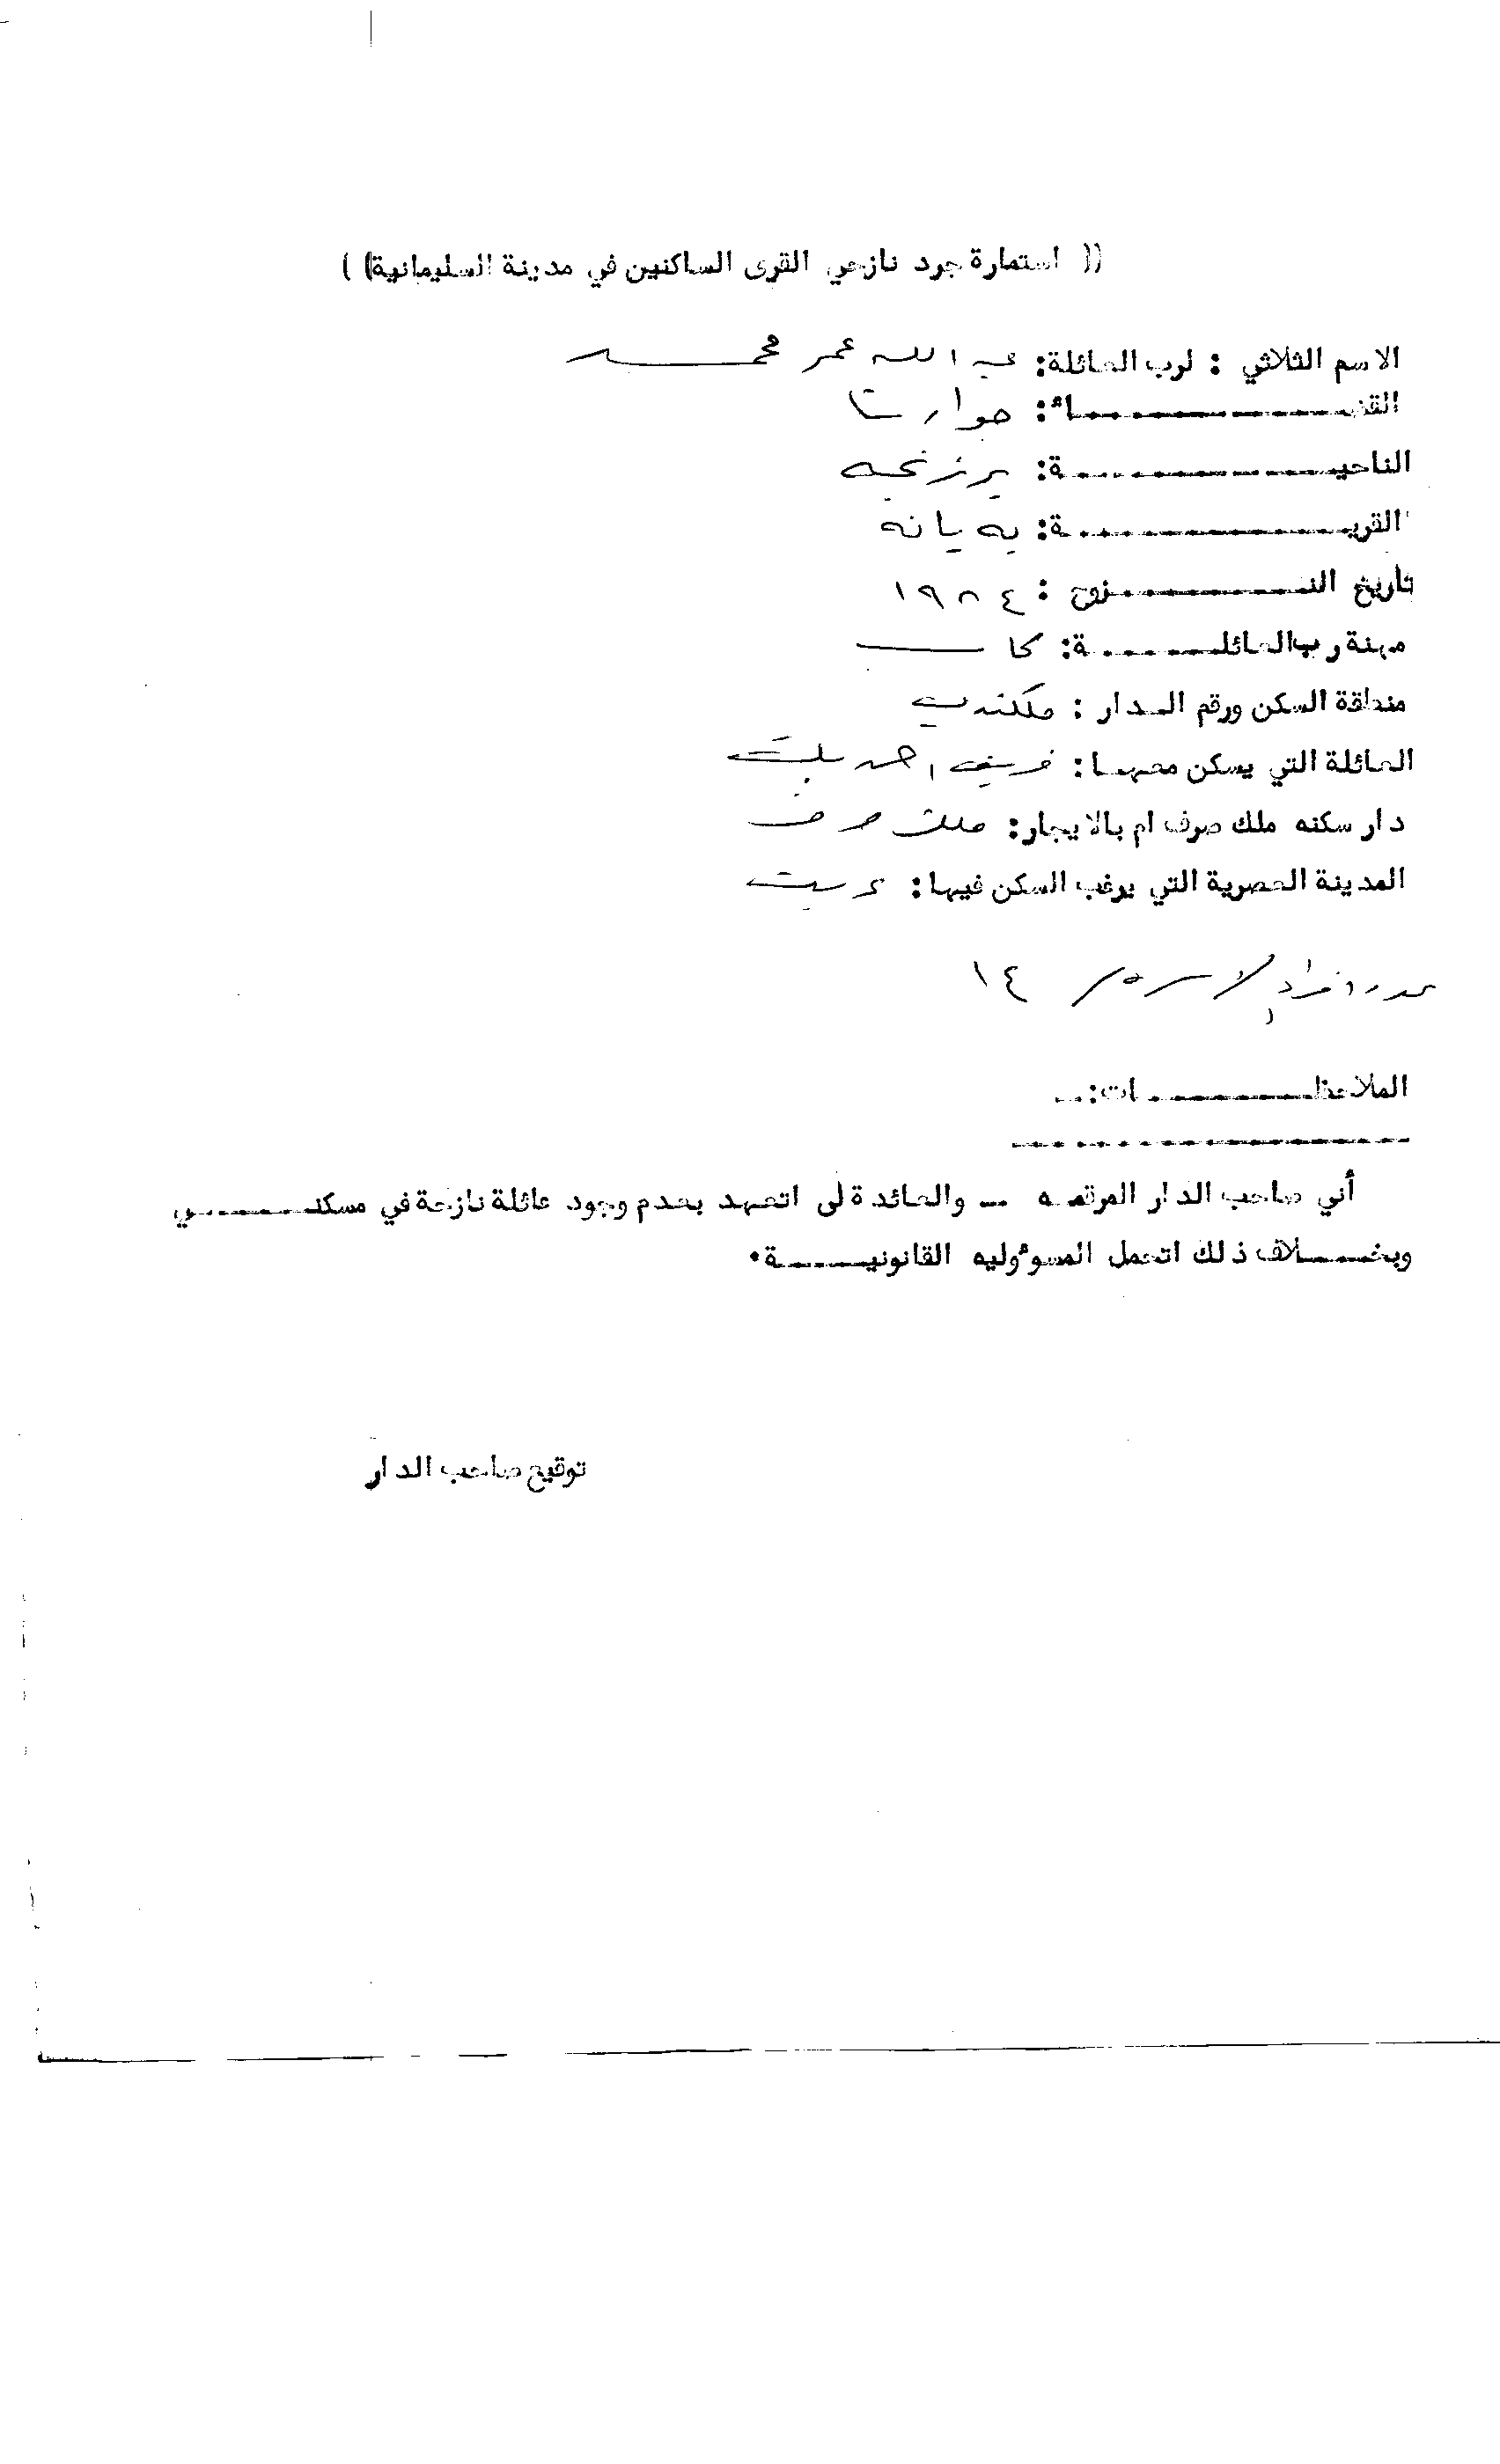 (( استمارة جرد نازحي القرى الساكنين في مدينة السليمانية) )
الاسم الثلاثي : لرب العائلة: عبدالله عمر محمد
القضاء: جوارتا
الناحية: برزنجه
القرية: به يانه
تاريخ النزوح : ١٩٨٤
مهنة رب العائلة: كاسب
منطقة السكن ورقم الدار : ملكندي
العائلة التي يسكن معهما:
دار سكنه ملك صرف ام بالايجار: ملك صرف
المدينة العصرية التي يرغب السكن فيها: عربت
عدد افراد الاسره ١٤
الملاحظات:ـ
أني صاحب الدار المرقمه ـ والعائدة لى اتعهد بعدم وجود عائلة نازحة في مسكني
وبخلاف ذلك اتحمل المسوءوليه القانونية.
توقيع صاحب الدار